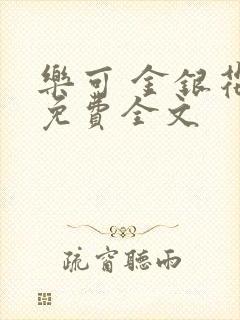 樂可 金銀花
免費全文
疏窗聽雨